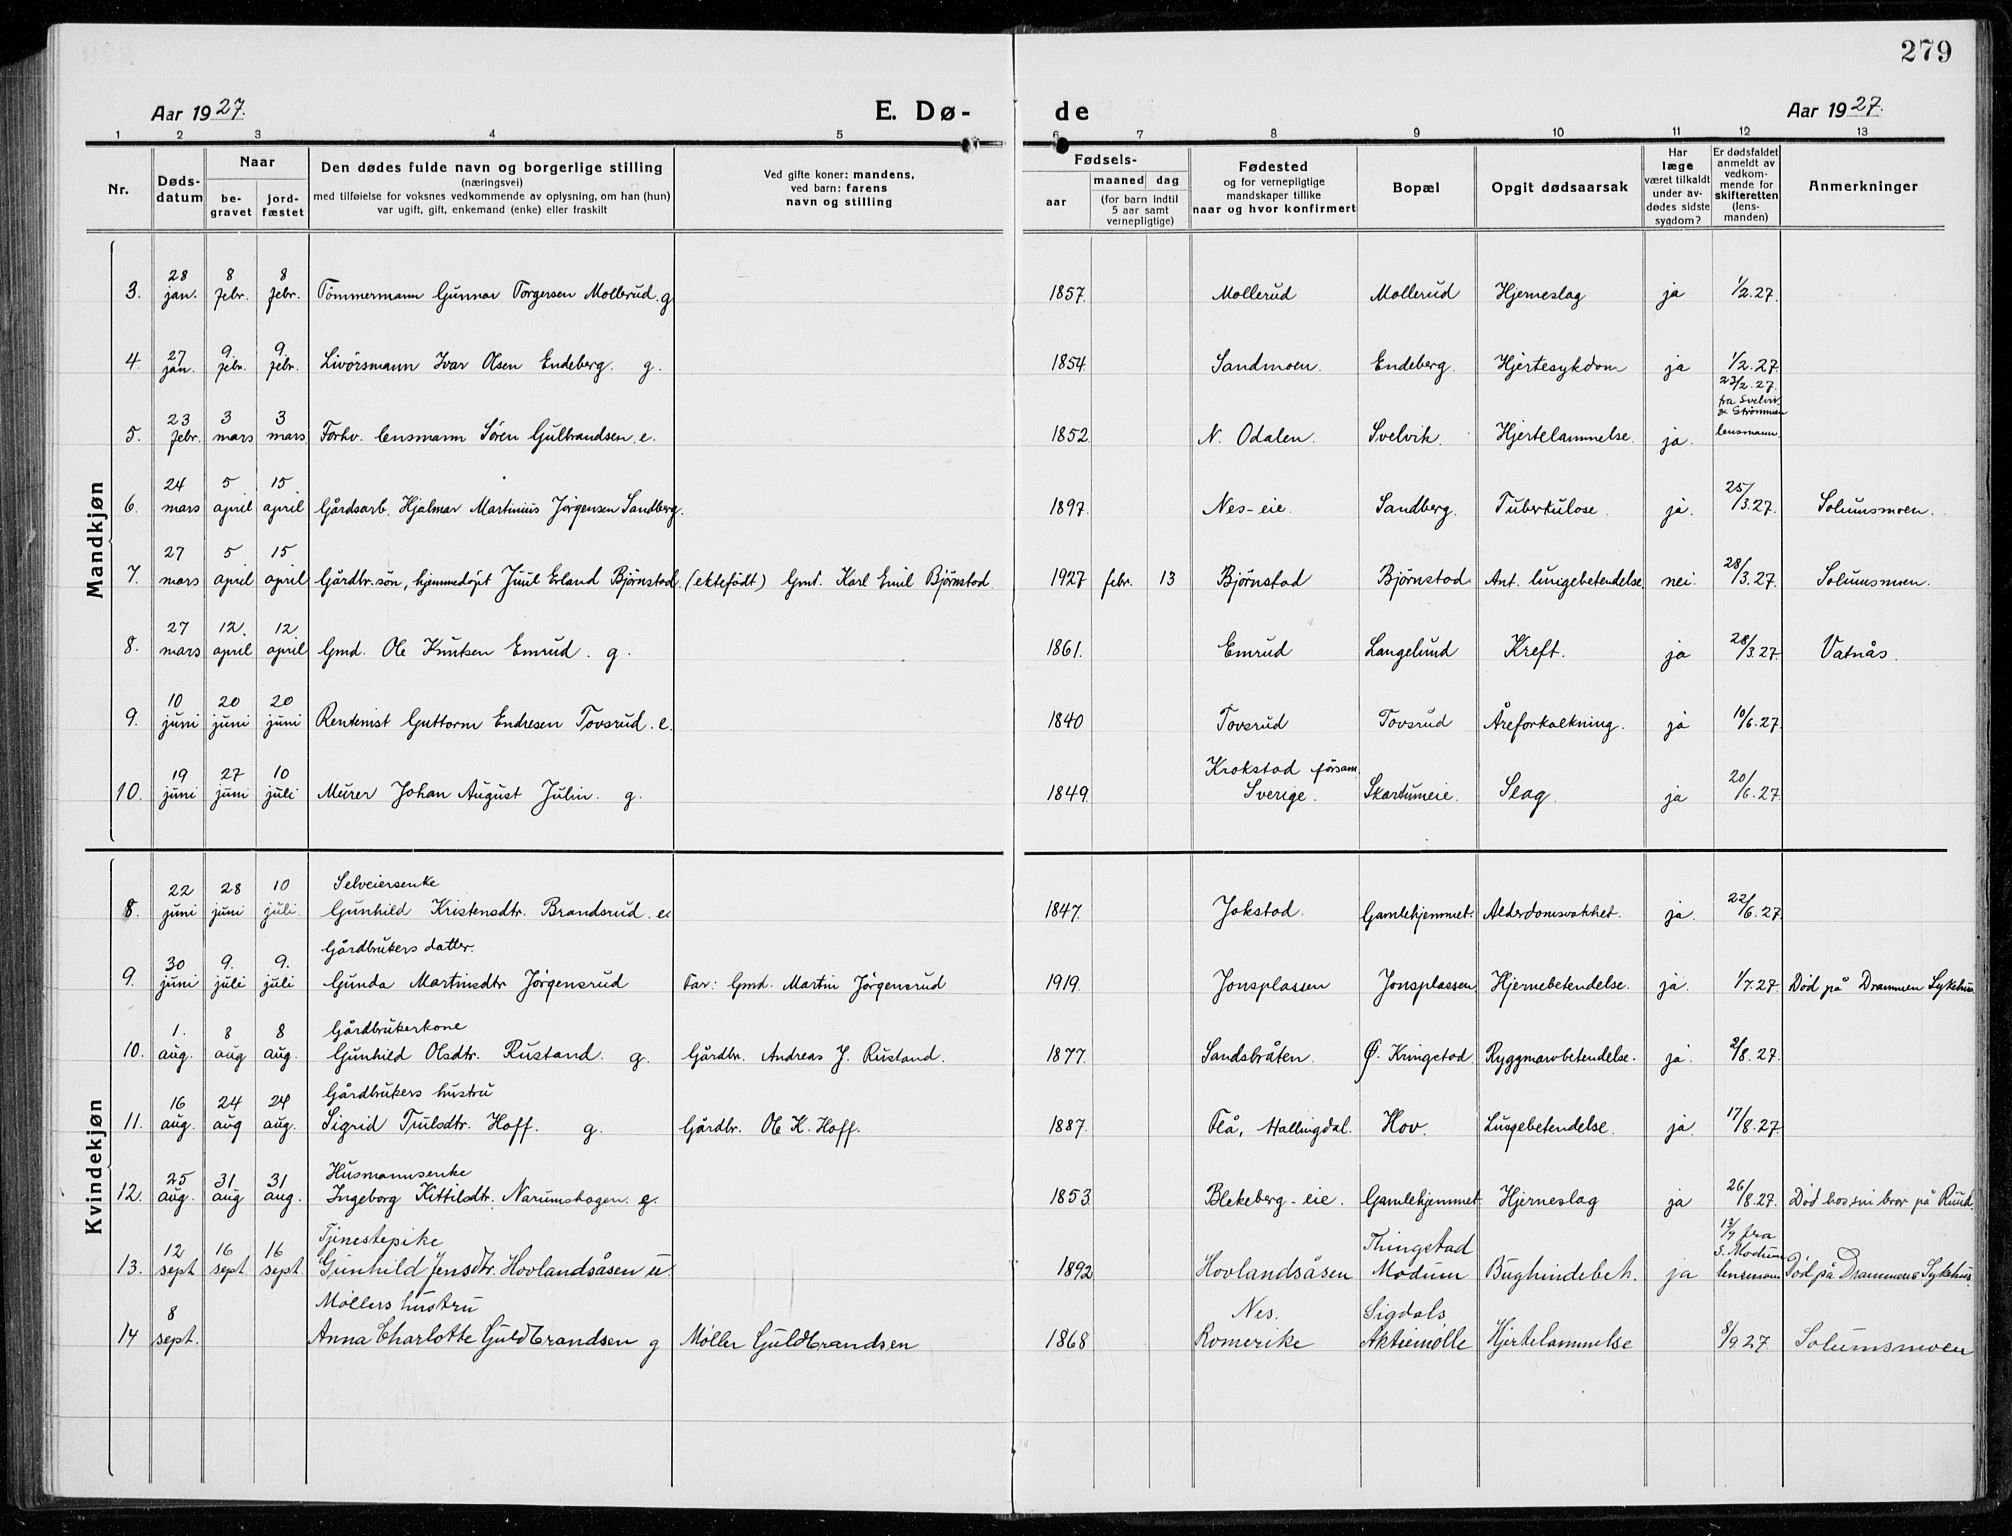 279
Aar 1927. E. Dø- de Aar 1927.
1 2 3 4 5 6 7 8 9 10 11 12 13
Nr. Døds-datum Naar be-gravet jord-fæstet Den dødes fulde navn og borgerlige stilling (næringsvei) med tilføielse for voksnes vedkommende av oplysning, om han (hun) var ugift, gift, enkemand (enke) eller fraskilt Ved gifte koner: mandens, ved barn: farens navn og stilling Fødsels- aar maaned dag (for barn indtil 5 aar samt vernepligtige) Fødested og for vernepligtige mandskaper tillike naar og hvor konfirmert Bopæl Opgit dødsaarsak Har læge været tilkaldt under av-dødes sidste sygdom? Er dødsfaldet anmeldt av vedkom-mende for skifteretten (lens-manden) Anmerkninger
Mandkjøn
3. 28 jan. 8 febr. 8 febr. Tømmermann Gunnar Torgersen Mollerud. g 1857. Mollerud Mollerud Hjerneslag ja 1/2.27.
4. 27 jan. 9. febr. 9. febr. Livörsmann Ivar Olsen Endeberg. g. 1854. Sandmoen. Endeberg. Hjertesykdom ja 1/2.27.
5. 23 febr. 3 mars 3 mars Forhv. lensmann Søren Gulbrandsen. e. 1852. N. Odalen. Svelvik. Hjertelammelse. ja. 23/2.27. fra Svelvik & Strømmen lensmann.
6. 24 mars 5 april 15 april Gårdsarb. Hjalmar Martinius Jørgensen Sandberg. 1897. Nes-eie. Sandberg. Tuberkulose. ja. 25/3.27. Solumsmoen.
7. 27 mars 5 april 15 april Gårdbr. søn, hjemmedøpt Juul Erland Bjørnstad (ektefödt) Gmd. Karl Emil Bjørnstad. 1927 febr. 13 Bjørnstad Bjørnstad Ant. lungebetendelse. nei. 28/3.27. Solumsmoen.
8. 27 mars 12. april 12 april Gmd. Ole Knutsen Emrud. g. 1861. Emrud Langelund Kreft. ja 28/3.27. Vatnås.
9. 10 juni 20 juni 20 juni Rentenist Guttorm Endresen Tovsrud. e. 1840 Tovsrud Tovsrud Åreforkalkning. ja 10/6.27.
10. 19 juni 27 juni 10 juli Murer Johan August Julin. g. 1849. Krokstad försam. Sverige. Skartumeie. Slag. ja 20/6.27.
Kvindekjøn
8. 22 juni 28 juni 10 juli. Selveiersenke Gunhild Kristensdtr. Brandsrud. e. 1847. Jokstad. Gamlehjemmet. Alderdomsvakhet. ja. 22/6.27.
9. 30 juni 9. juli 9. juli Gårdbrukers datter. Gunda Martinsdtr Jørgensrud Far: Gmd. Martin Jørgensrud 1919. Jonsplassen Jonsplassen Hjernebetendelse. ja. 1/7.27. Død på Drammen Sykehus
10. 1. aug. 8 aug 8 aug. Gårdbrukerkone Gunhild Olsdtr. Rustand. g. Gårdbr. Andreas J. Rustand. 1877. Sandsbråten. Ø. Kringstad. Ryggmarvbetendelse. ja. 2/8.27.
11. 16 aug. 24 aug 24 aug. Gårdbrukers hustru Sigrid Trulsdtr. Hoff. g. Gårdbr. Ole K. Hoff. 1887. Flå, Hallingdal. Hov. Lungebetendelse. ja. 17/8.27.
12. 25 aug. 31 aug 31 aug. Husmannsenke Ingeborg Kittilsdtr. Narumshagen. e. 1853. Blekeberg-eie. Gamlehjemmet Hjerneslag ja 26/8.27. Död hos sin bror på Ruud.
13. 12 sept 16 sept 16 sept Tjenestepike Gunhild Jensdtr. Hovlandsåsen u. 1892 Hovlandsåsen Thingstad Modum Bughindebet. ja 13/9 fra S. Modum lensmann Død på Drammens Sykehus
14 8 sept. Møllers hustru Anna Charlotte Guldbrandsen g Møller Guldbrandsen 1868 Nes. Romerike Sigdals Aktiemølle Hjertelammelse 8/9.27 Solumsmoen